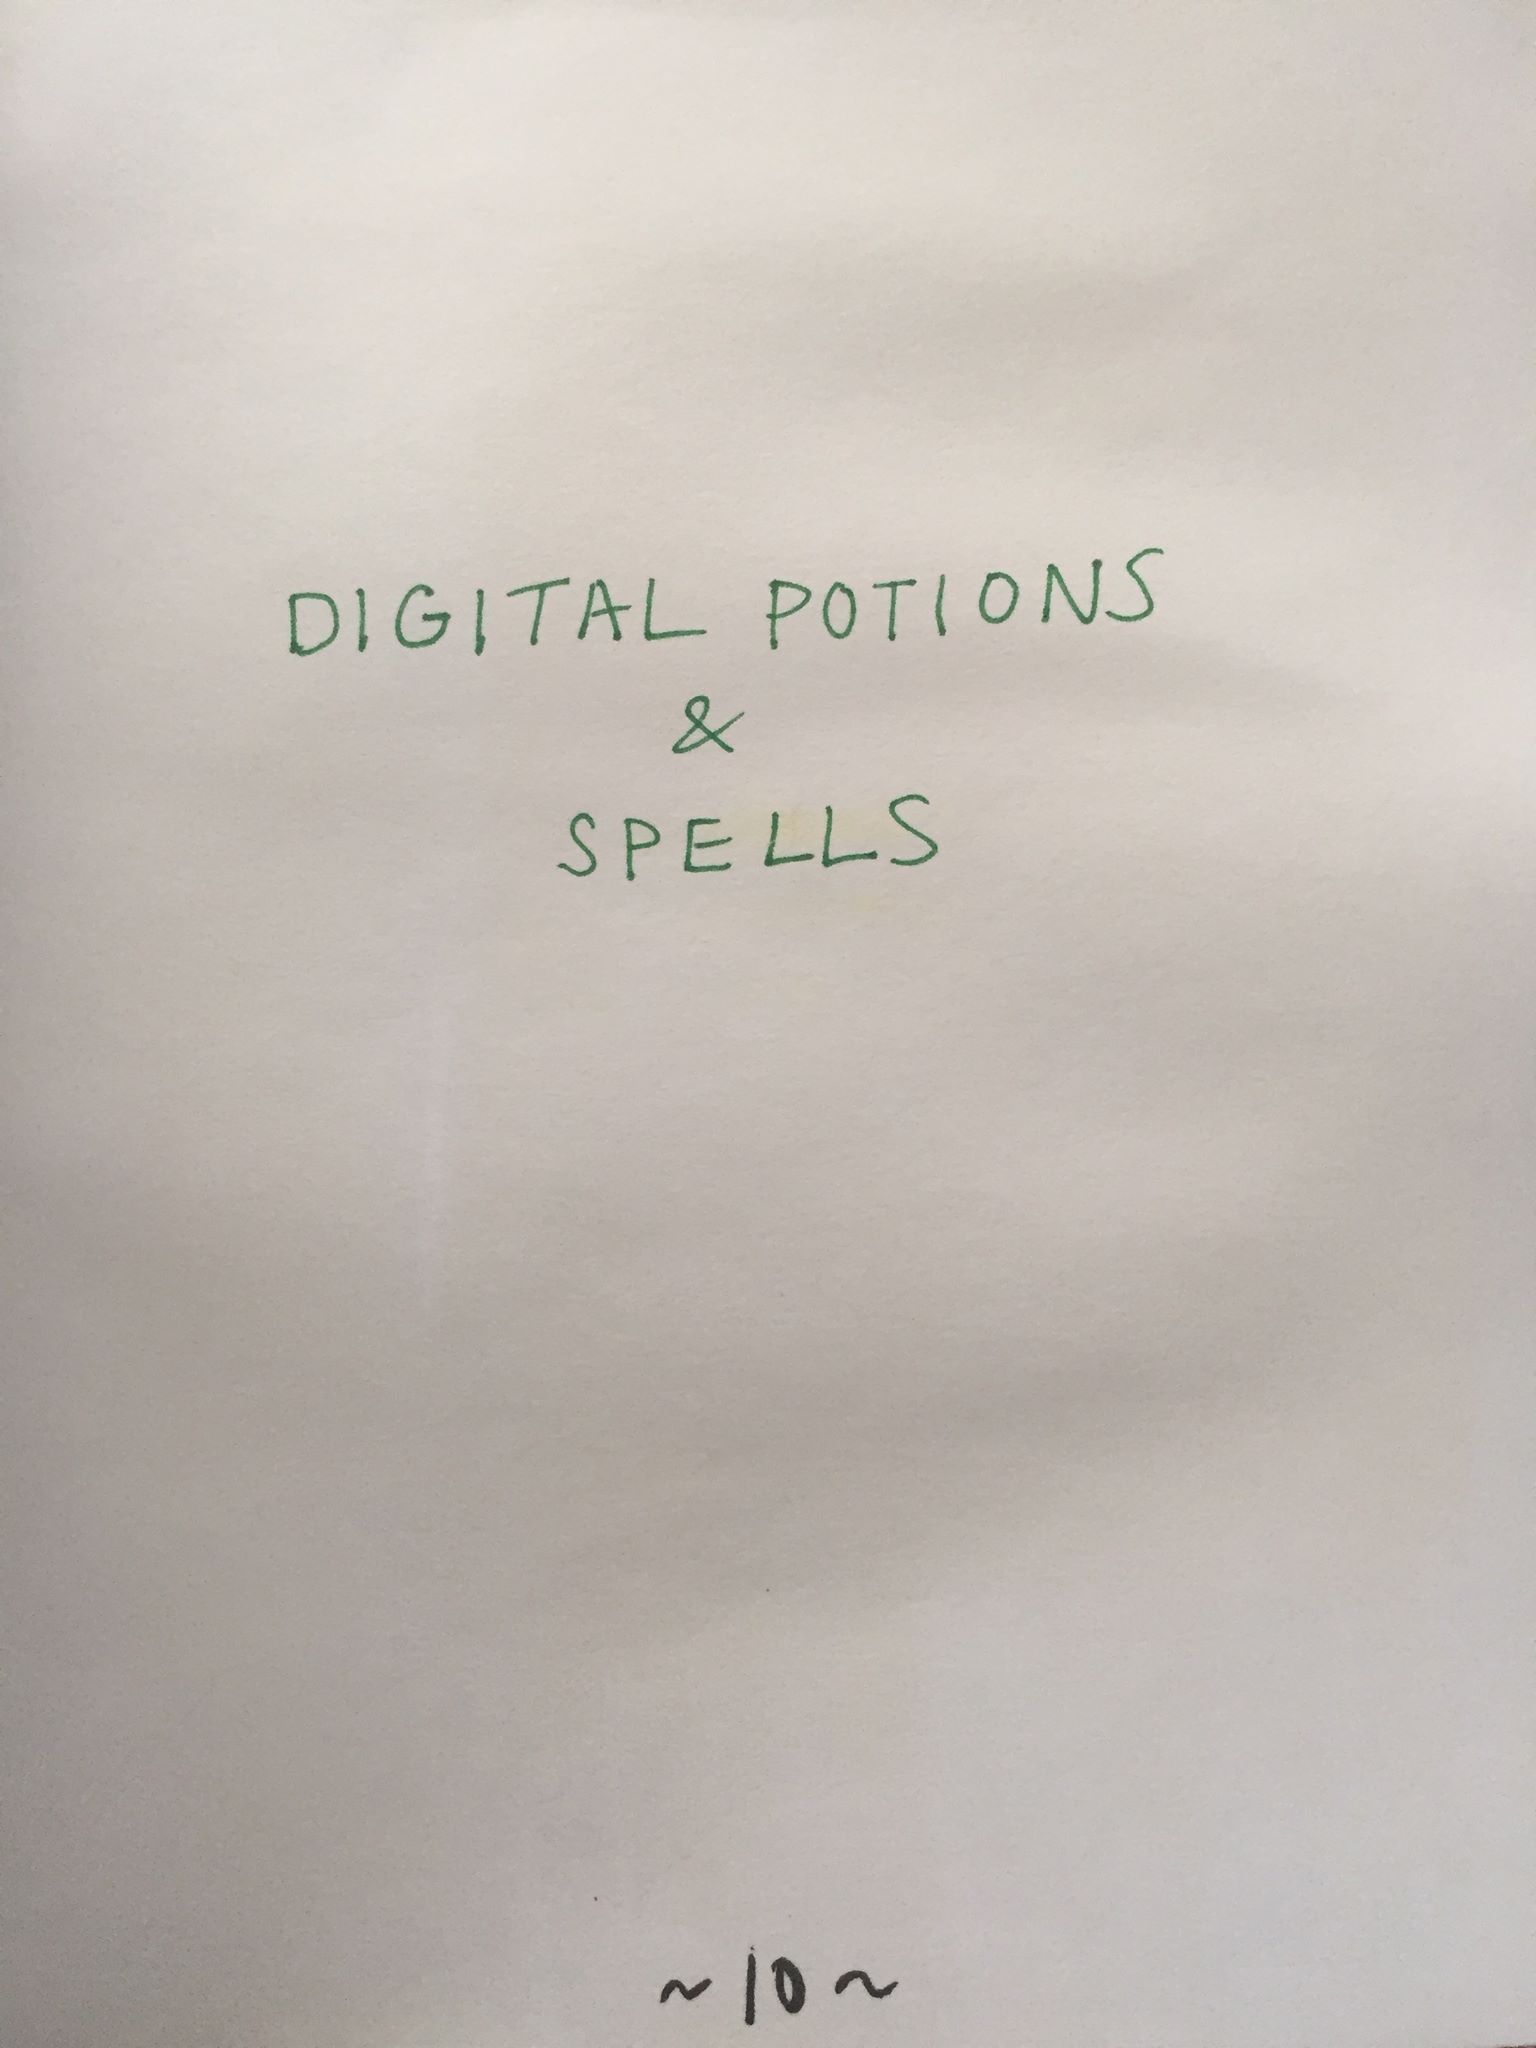 DIGITAL POTIONS
&
SPELLS
~10~